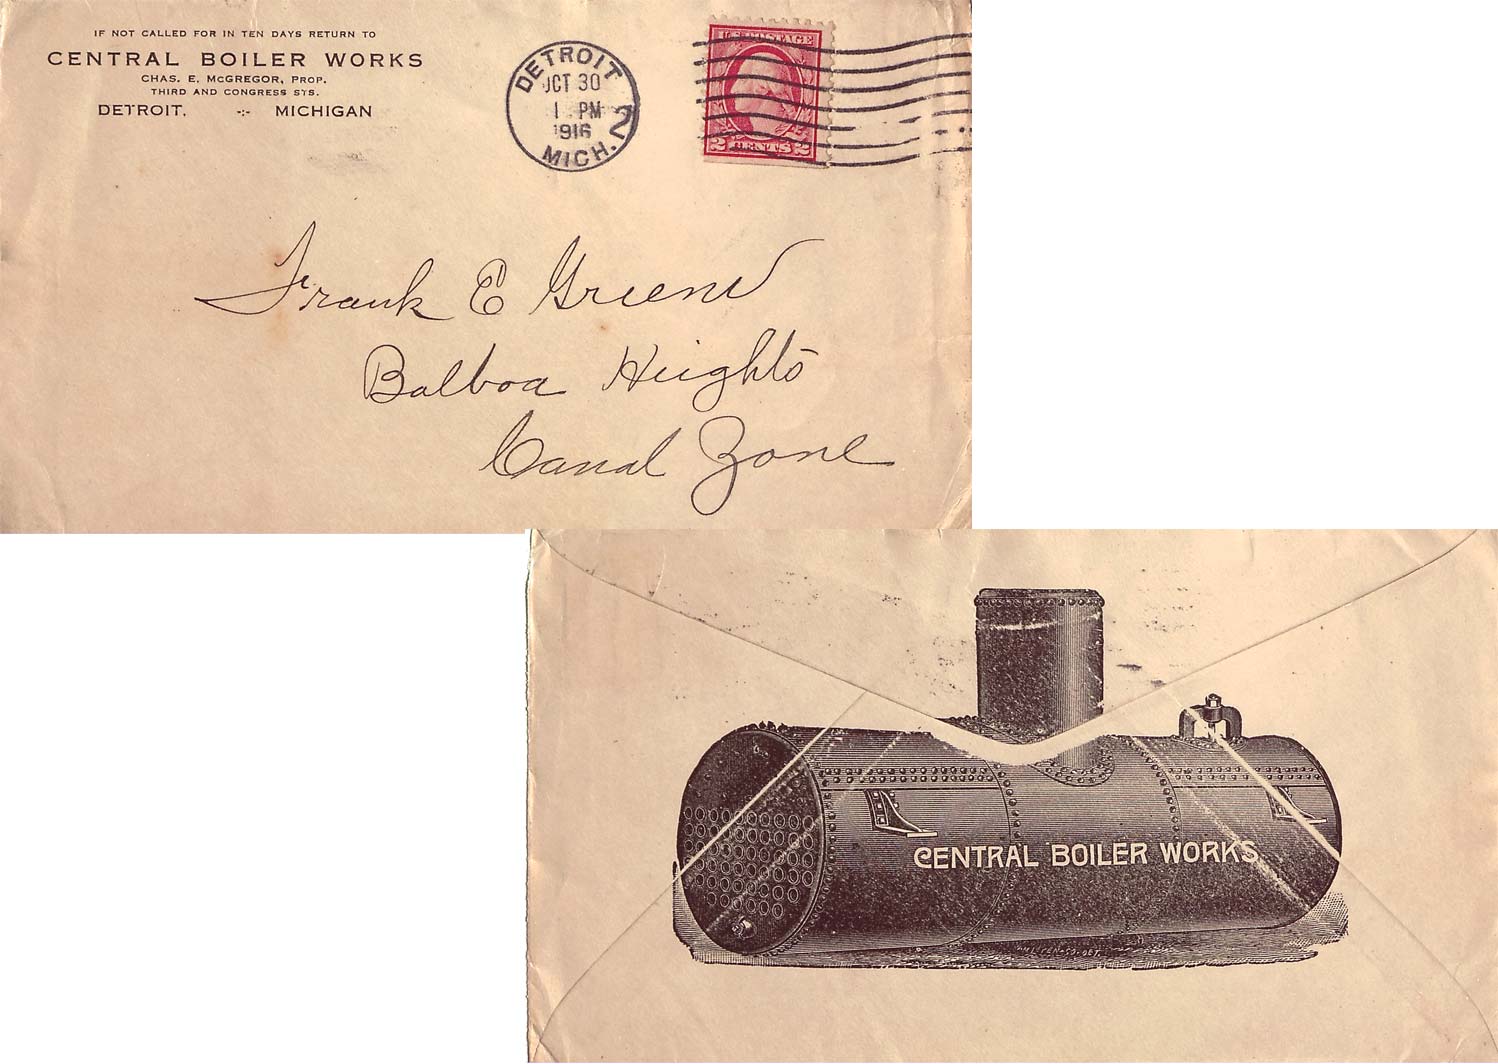 IF NOT CALLED FOR IN TEN DAYS RETURN TO
CENTRAL BOILER WORKS
CHAS. E. McGREGOR, PROP.
THIRD AND CONGRESS STS.
DETROIT, -:- MICHIGAN
DETROIT
OCT 30
1 PM
1916
MICH. 2
U.S. POSTAGE
2 CENTS 2
Frank E Greene
Balboa Heights
Canal Zone
CENTRAL BOILER WORKS